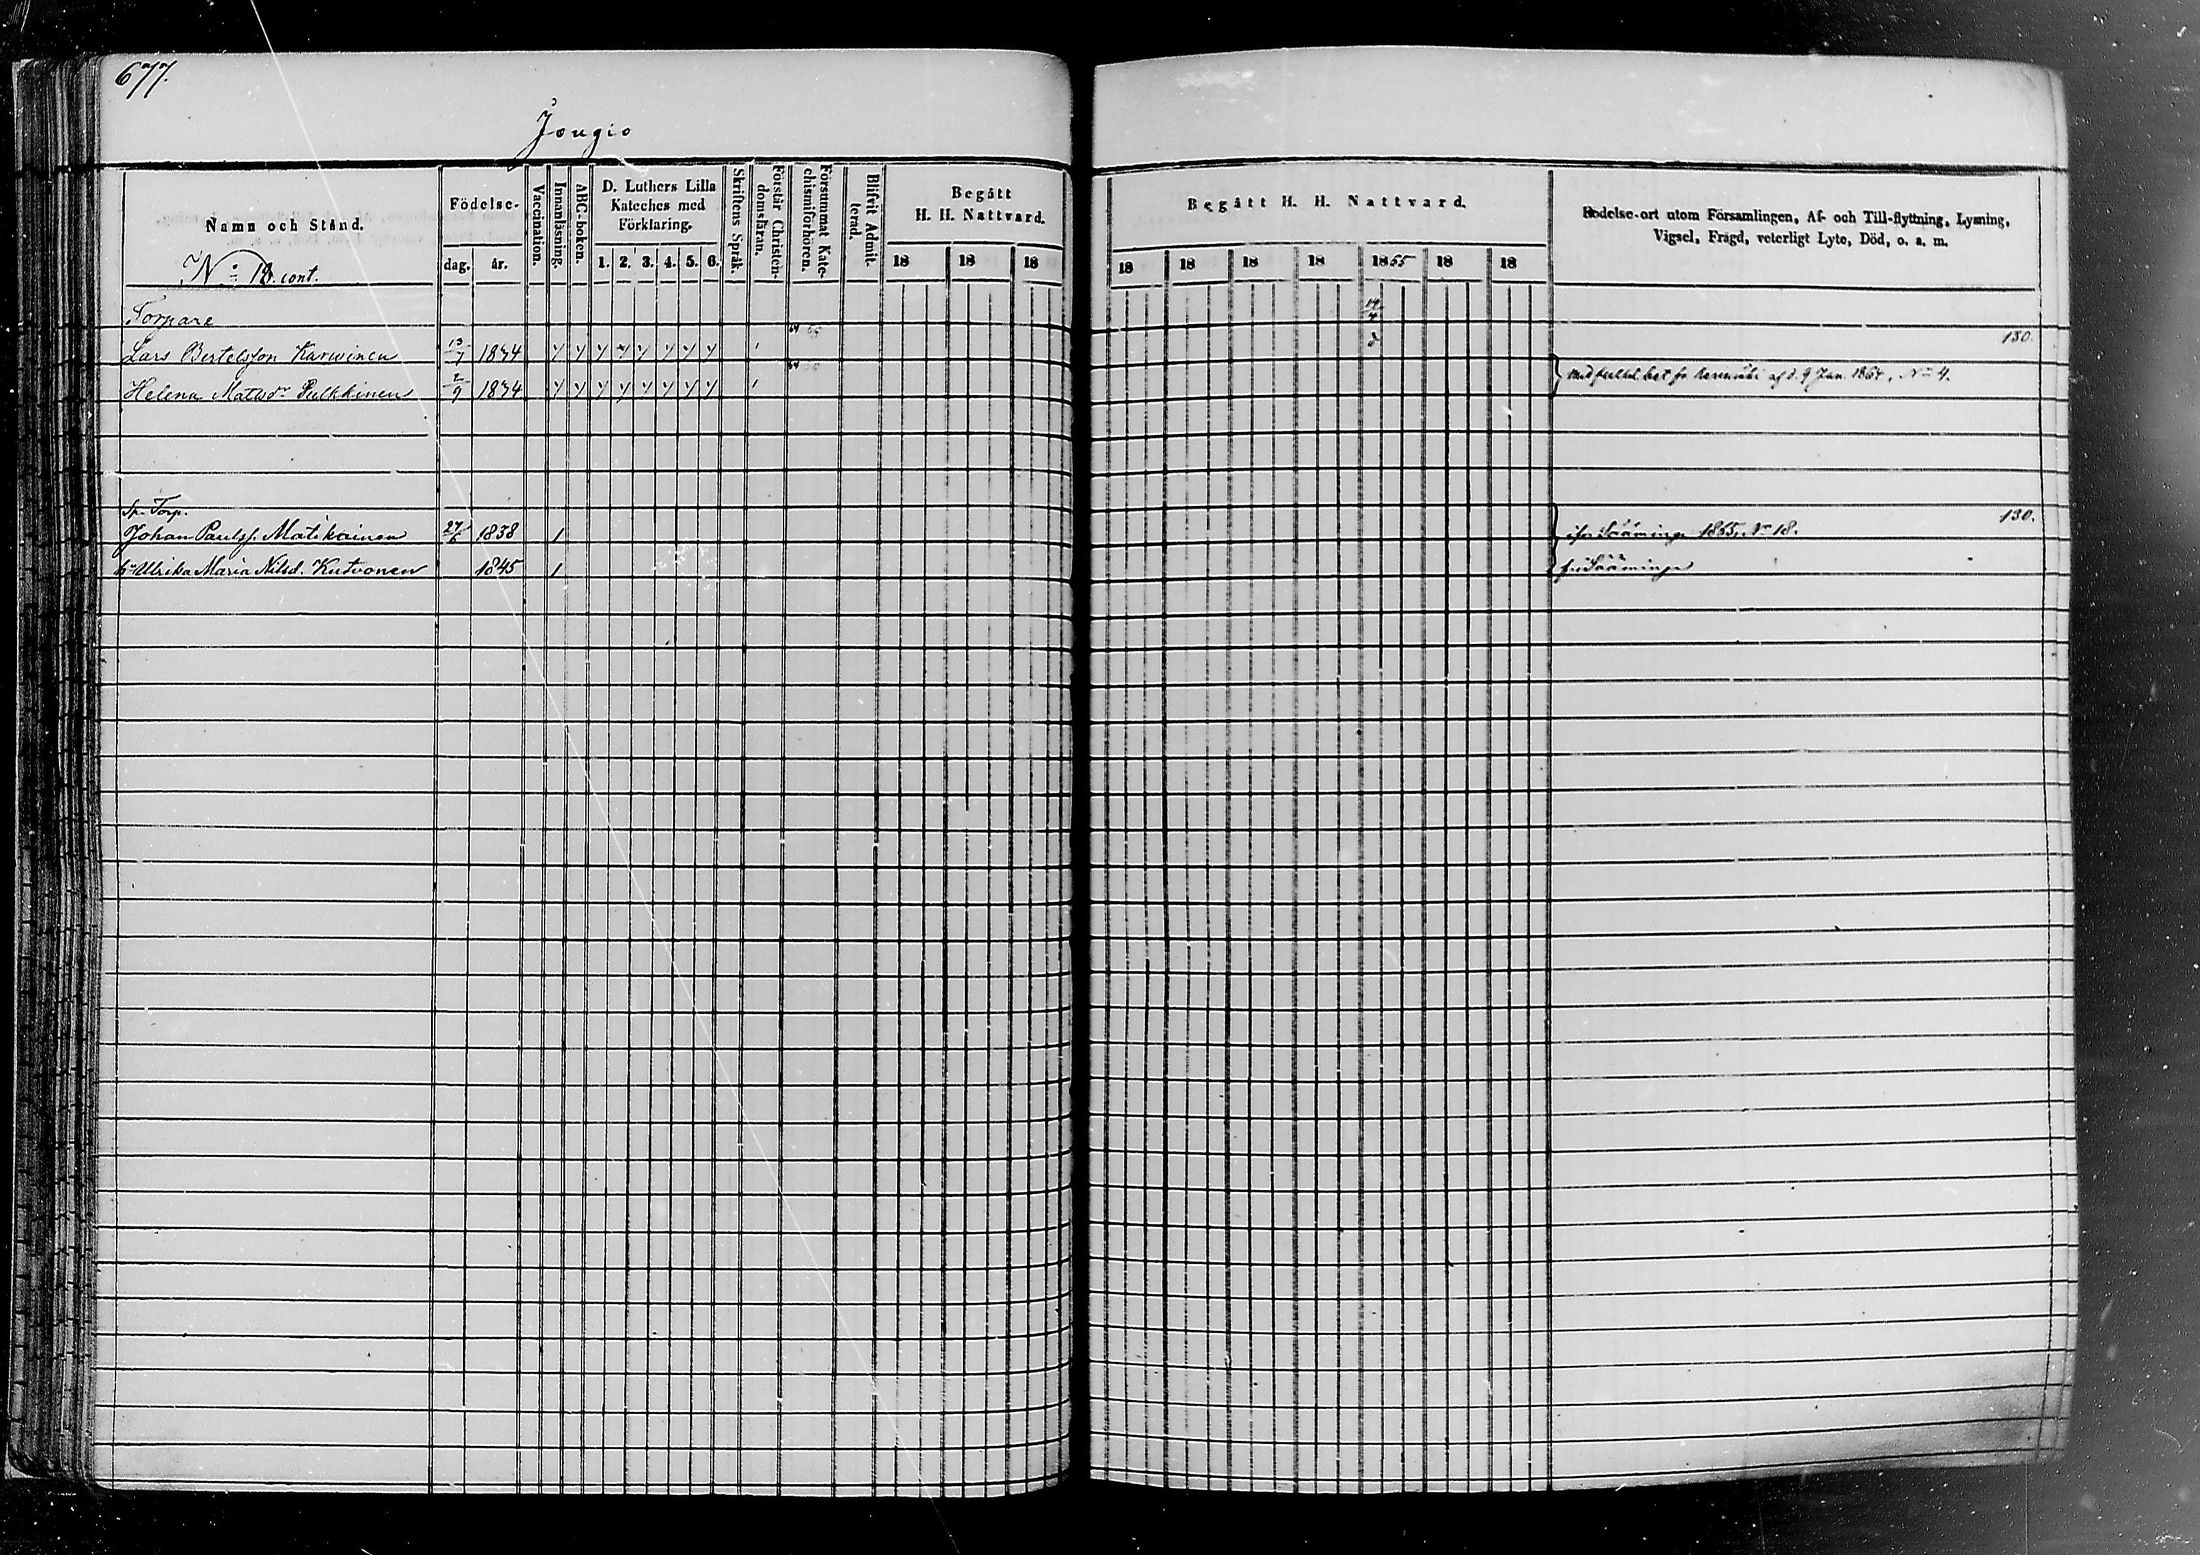 677.
Jougio
Namn och Stånd.
Födelse-
dag. år.
Vaccination.
Innanläsning.
ABC-boken.
D. Luthers Lilla
Kateches med
Förklaring.
1. 2. 3. 4. 5. 6.
Skriftens Språk.
Förstår Christen-
domsläran.
Försummat Kate-
chismiförhören.
Blifvit Admit-
terad.
Begått
H. H. Nattvard.
18 18 18
Begått H. H. Nattvard.
18 18 18 18 1865 18 18
Födelse-ort utom Församlingen, Af- och Till-flyttning, Lysning,
Vigsel, Frägd, veterligt Lyte, Död, o. s. m.
No 18. cont.
Torpare
Lars Bertelsson Karvinen 13/7 1834 130.
Helena Matsdr Pulkkinen 2/9 1834 af d. 9 Jan. 1864, No 4.
Sp. Torp.
Johan Paulss. Matikainen 27/6 1838 1 Sääminge 1865, No 18. 130.
Ulrika Maria Nilsd. Kutvonen 1845 1 Sääminge